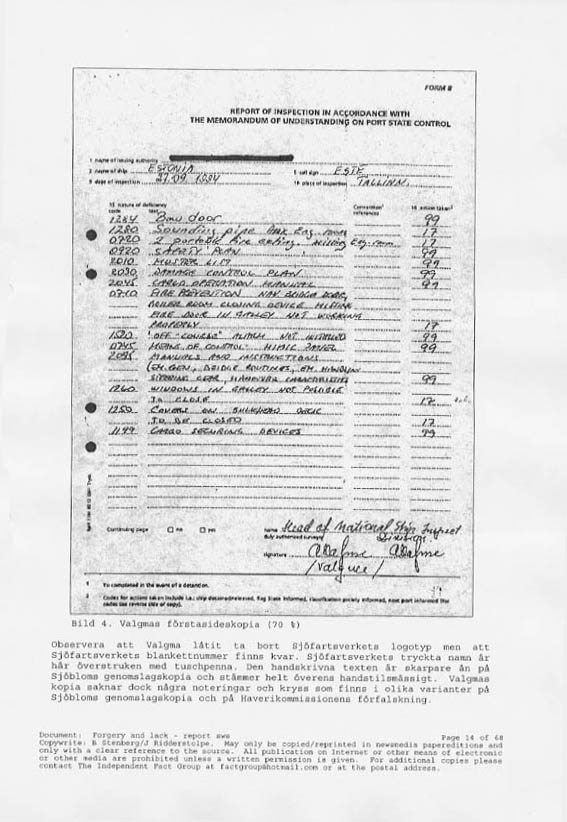 FORM B
REPORT OF INSPECTION IN ACCORDANCE WITH
THE MEMORANDUM OF UNDERSTANDING ON PORT STATE CONTROL
1 name of issuing authority
2 name of ship ESTONIA 5 call sign ESTE
9 date of inspection 27.09 1994 10 place of inspection TALLINN
15 nature of deficiency Convention references 16 action taken
code text
1284 Bow door 99
1280 Sounding pipe Aux Eng. room 17
0720 2 portable fire exting. missing Eng. room 17
0920 SAFETY PLAN 99
2010 MUSTER LIST 99
2030 DAMAGE CONTROL PLAN 99
2045 CARGO OPERATION MANUAL 99
0710 FIRE PREVENTION NAV BRIDGE DOOR,
BOILER ROOM CLOSING DEVICE MISSING
FIRE DOOR IN GALLEY NOT WORKING
PROPERLY 17
1520 "OFF-COURSE" ALARM NOT INSTALLED 99
0745 MEANS OF CONTROL: MIMIC PANEL 99
2035 MANUALS AND INSTRUCTIONS
(EM.GEN, BRIDGE ROUTINES, EM. HANDLING
STEERING GEAR, MANEUVER CHARACTERISTICS 99
1260 WINDOWS IN GALLEY NOT POSSIBLE
TO CLOSE 17
1250 COVERS ON BULKHEAD DECK
TO BE CLOSED 17
1199 CARGO SECURING DEVICES 99
Continuing page no yes
name Head of National Ship Inspect
duly authorized surveyor Division
signature
/Valgma/
1 To completed in the event of a detention.
2 Codes for actions taken include i.a.: ship detained/released, flag State informed, classification society informed, next port informed (for codes see reverse side of copy).
Bild 4. Valgmas förstasideskopia (70 %)
Observera att Valgma låtit ta bort Sjöfartsverkets logotyp men att
Sjöfartsverkets blankettnummer finns kvar. Sjöfartsverkets tryckta namn är
här överstruken med tuschpenna. Den handskrivna texten är skarpare än på
Sjöbloms genomslagskopia och stämmer helt överens handstilsmässigt. Valgmas
kopia saknar dock några noteringar och kryss som finns i olika varianter på
Sjöbloms genomslagskopia och på Haverikommissionens förfalskning.
Document: Forgery and lack - report swe Page 14 of 68
Copywrite: B Stenberg/J Ridderstolpe. May only be copied/reprinted in newsmedia papereditions and
only with a clear reference to the source. All publication on Internet or other means of electronic
or other media are prohibited unless a written permission is given. For additional copies please
contact The Independent Fact Group at factgroup@hotmail.com or at the postal address.